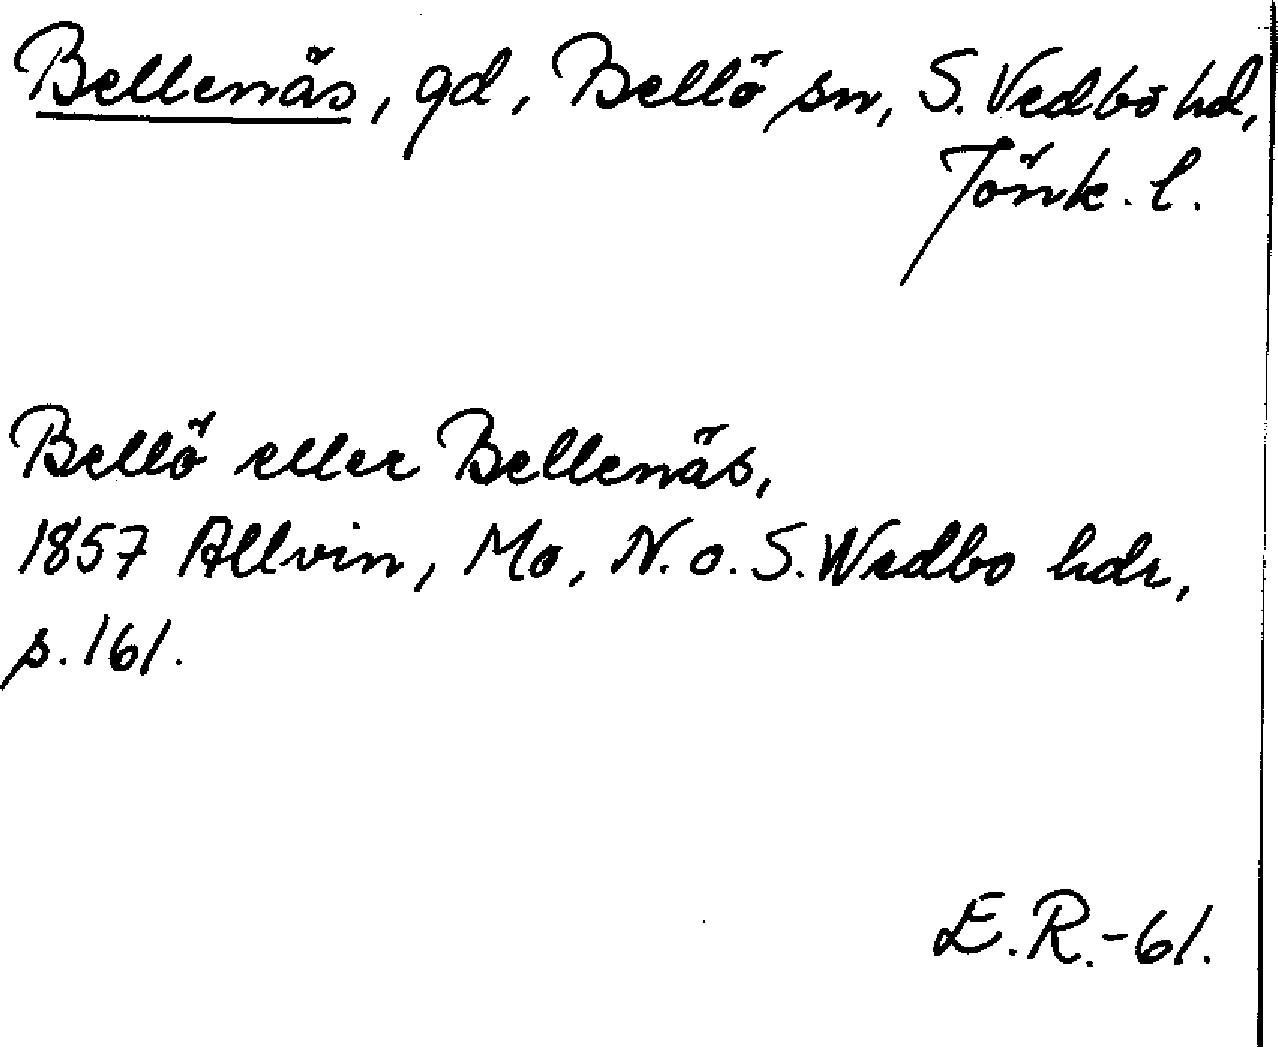 Bellenäs, gd, Bellö sn, S. Vedbo hd,
Jönk. l.
Bellö eller Bellenäs,
1857 Allvin, Mo, N. o. S. Wedbo hdr,
s. 161.
E.R.-61.